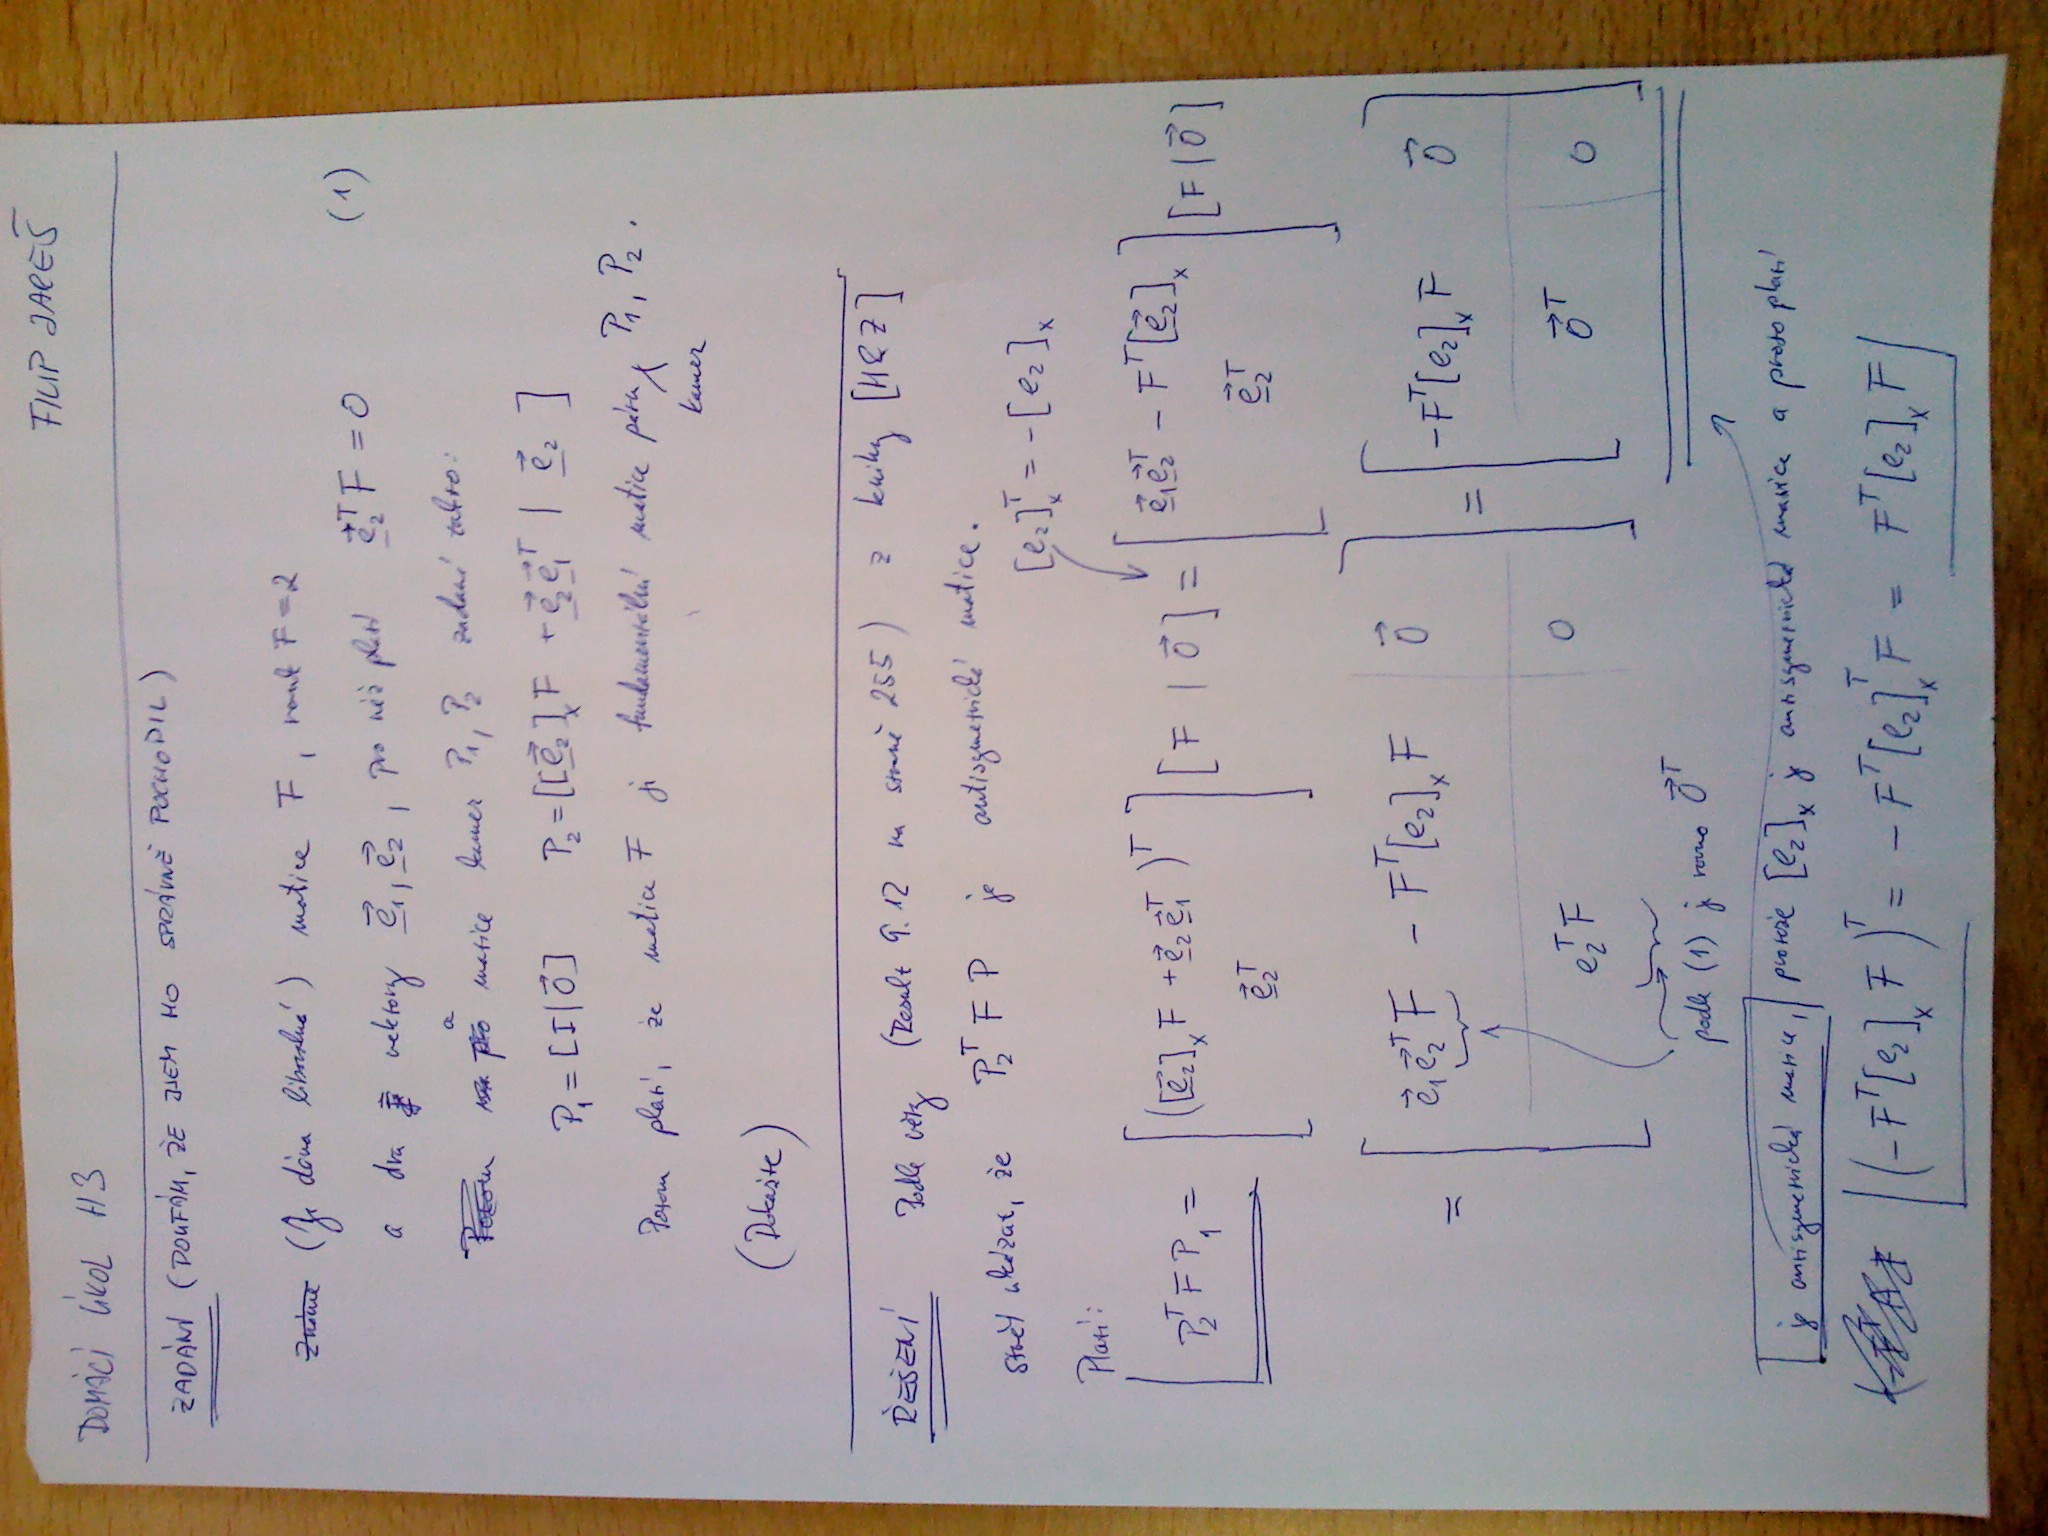 DOMÁCÍ ÚKOL H3 FILIP JAREŠ
ZADÁNÍ (DOUFÁM, ŽE JSEM HO SPRÁVNĚ POCHOPIL)
(Je dána libovolná) matice F, rank F = 2
a dva vektory e⃗₁, e⃗₂, pro něž platí e⃗₂ᵀF = 0 (1)
a matice kamer P₁, P₂ zadané takto:
P₁ = [I | 0⃗] P₂ = [[e⃗₂]ₓF + e⃗₂e⃗₁ᵀ | e⃗₂]
Potom platí, že matice F je fundamentální matice páru kamer P₁, P₂.
(Dokažte)
ŘEŠENÍ Podle věty (Result 9.12 na straně 255) z knihy [H&Z]
stačí ukázat, že P₂ᵀ F P je antisymetrická matice.
[e₂]ₓᵀ = -[e₂]ₓ
Platí:
P₂ᵀ F P₁ = [ ([e⃗₂]ₓF + e⃗₂e⃗₁ᵀ)ᵀ ; e⃗₂ᵀ ] [F | 0⃗] = [ e⃗₁e⃗₂ᵀ - Fᵀ[e⃗₂]ₓ ; e⃗₂ᵀ ] [F | 0⃗]
= [ e⃗₁e⃗₂ᵀF - Fᵀ[e₂]ₓF 0⃗ ; e₂ᵀF 0 ] = [ -Fᵀ[e₂]ₓF 0⃗ ; 0⃗ᵀ 0 ]
podle (1) je rovno 0⃗ᵀ
je antisymetrická matice, protože [e₂]ₓ je antisymetrická matice a proto platí
(-Fᵀ[e₂]ₓF)ᵀ = -Fᵀ[e₂]ₓᵀF = Fᵀ[e₂]ₓF